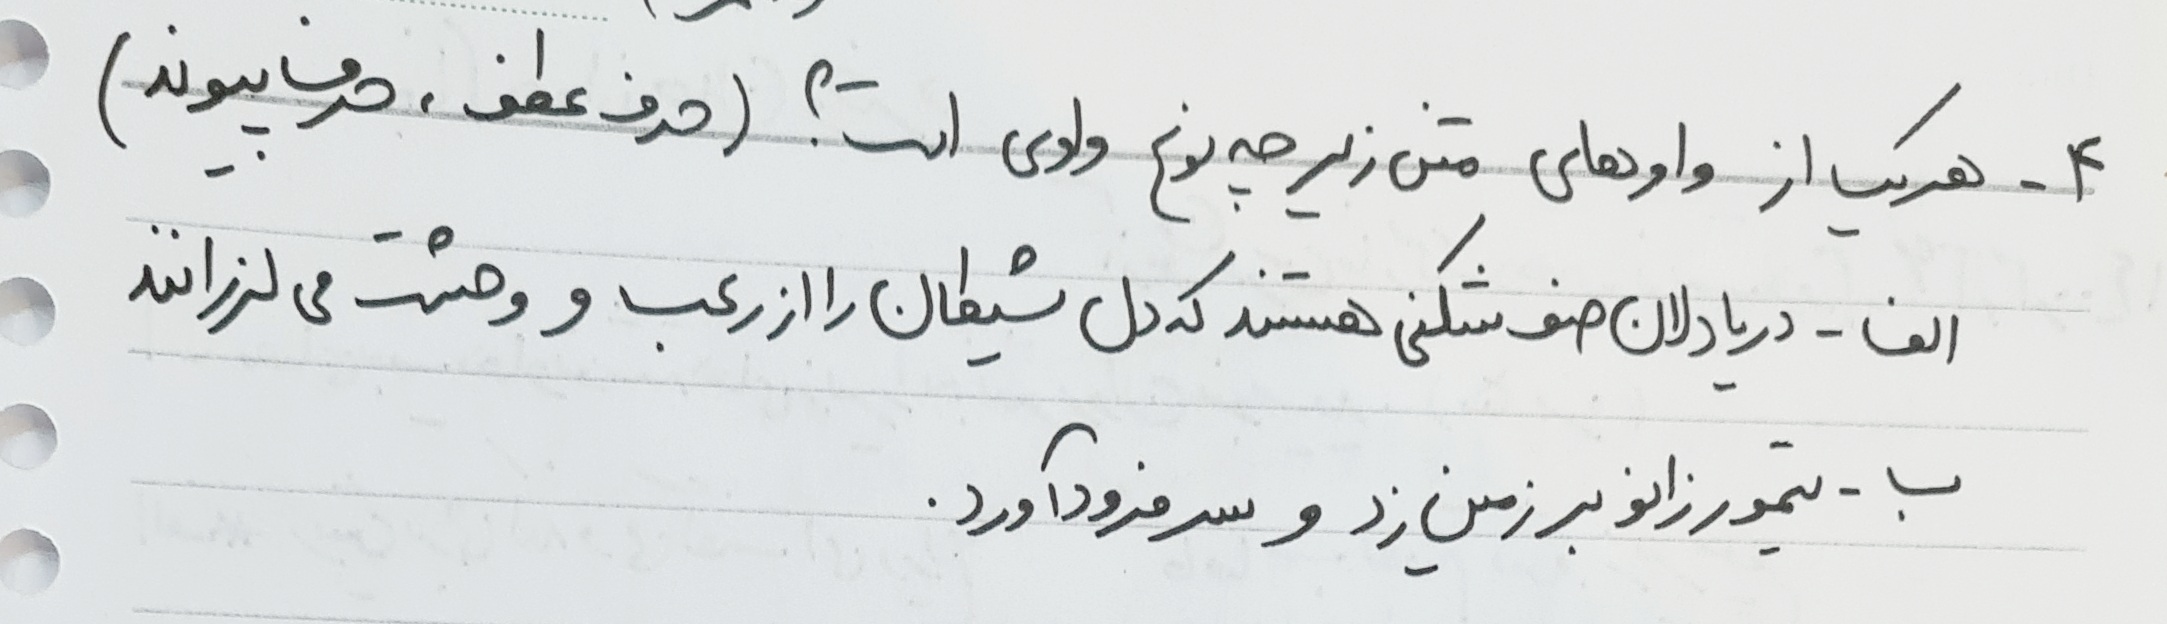 ۴ - هریک از واوهای متن زیر چه نوع واوی است؟ (حرف عطف ، حرف پیوند)
الف - دریادلان صف شکنی هستند که دل شیطان را از رعب و وحشت می لرزانند
ب - تیمور زانو بر زمین زد و سر فرود آورد.